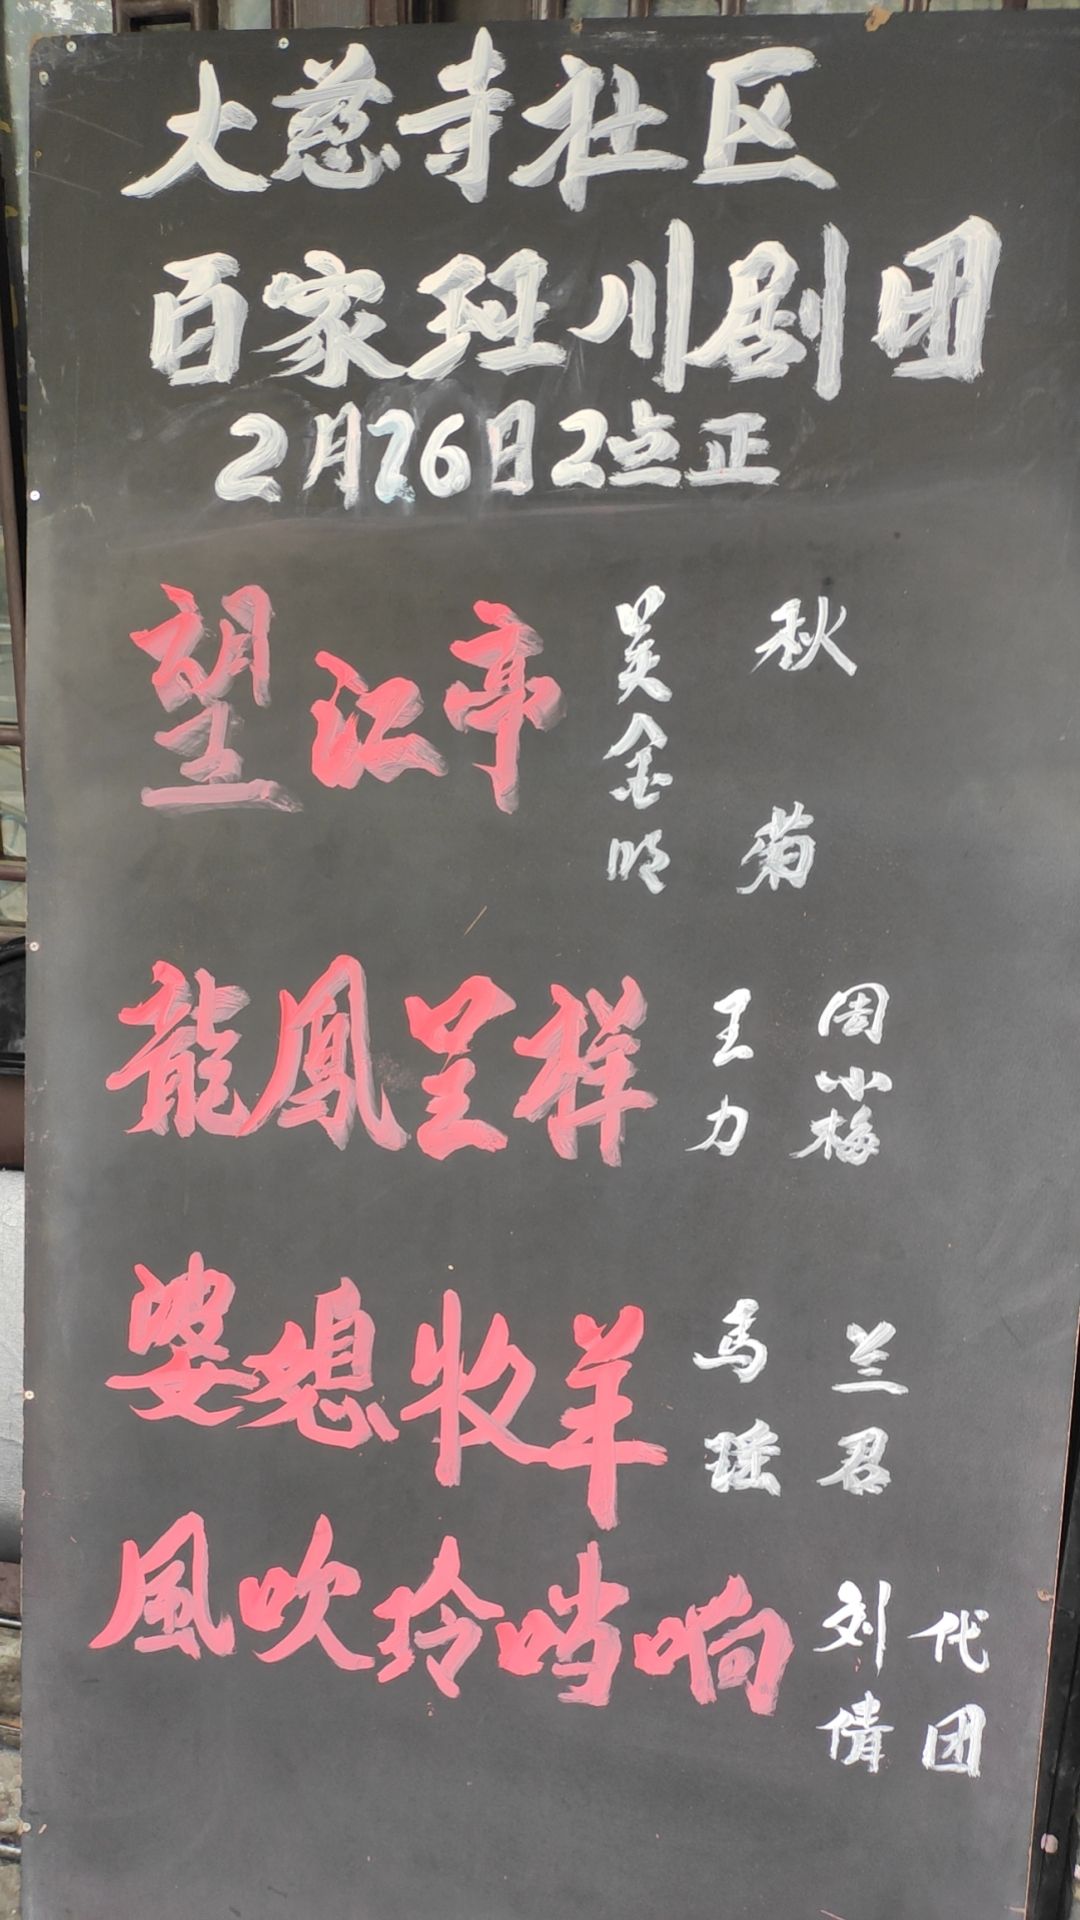 大慈寺社区
百家班川剧团
2月26日2点正
望江亭 吴金明 秋菊
龍鳳呈样 王力 周小梅
婆媳牧羊 马瑶 兰君
風吹玲哨响 刘倩 代团